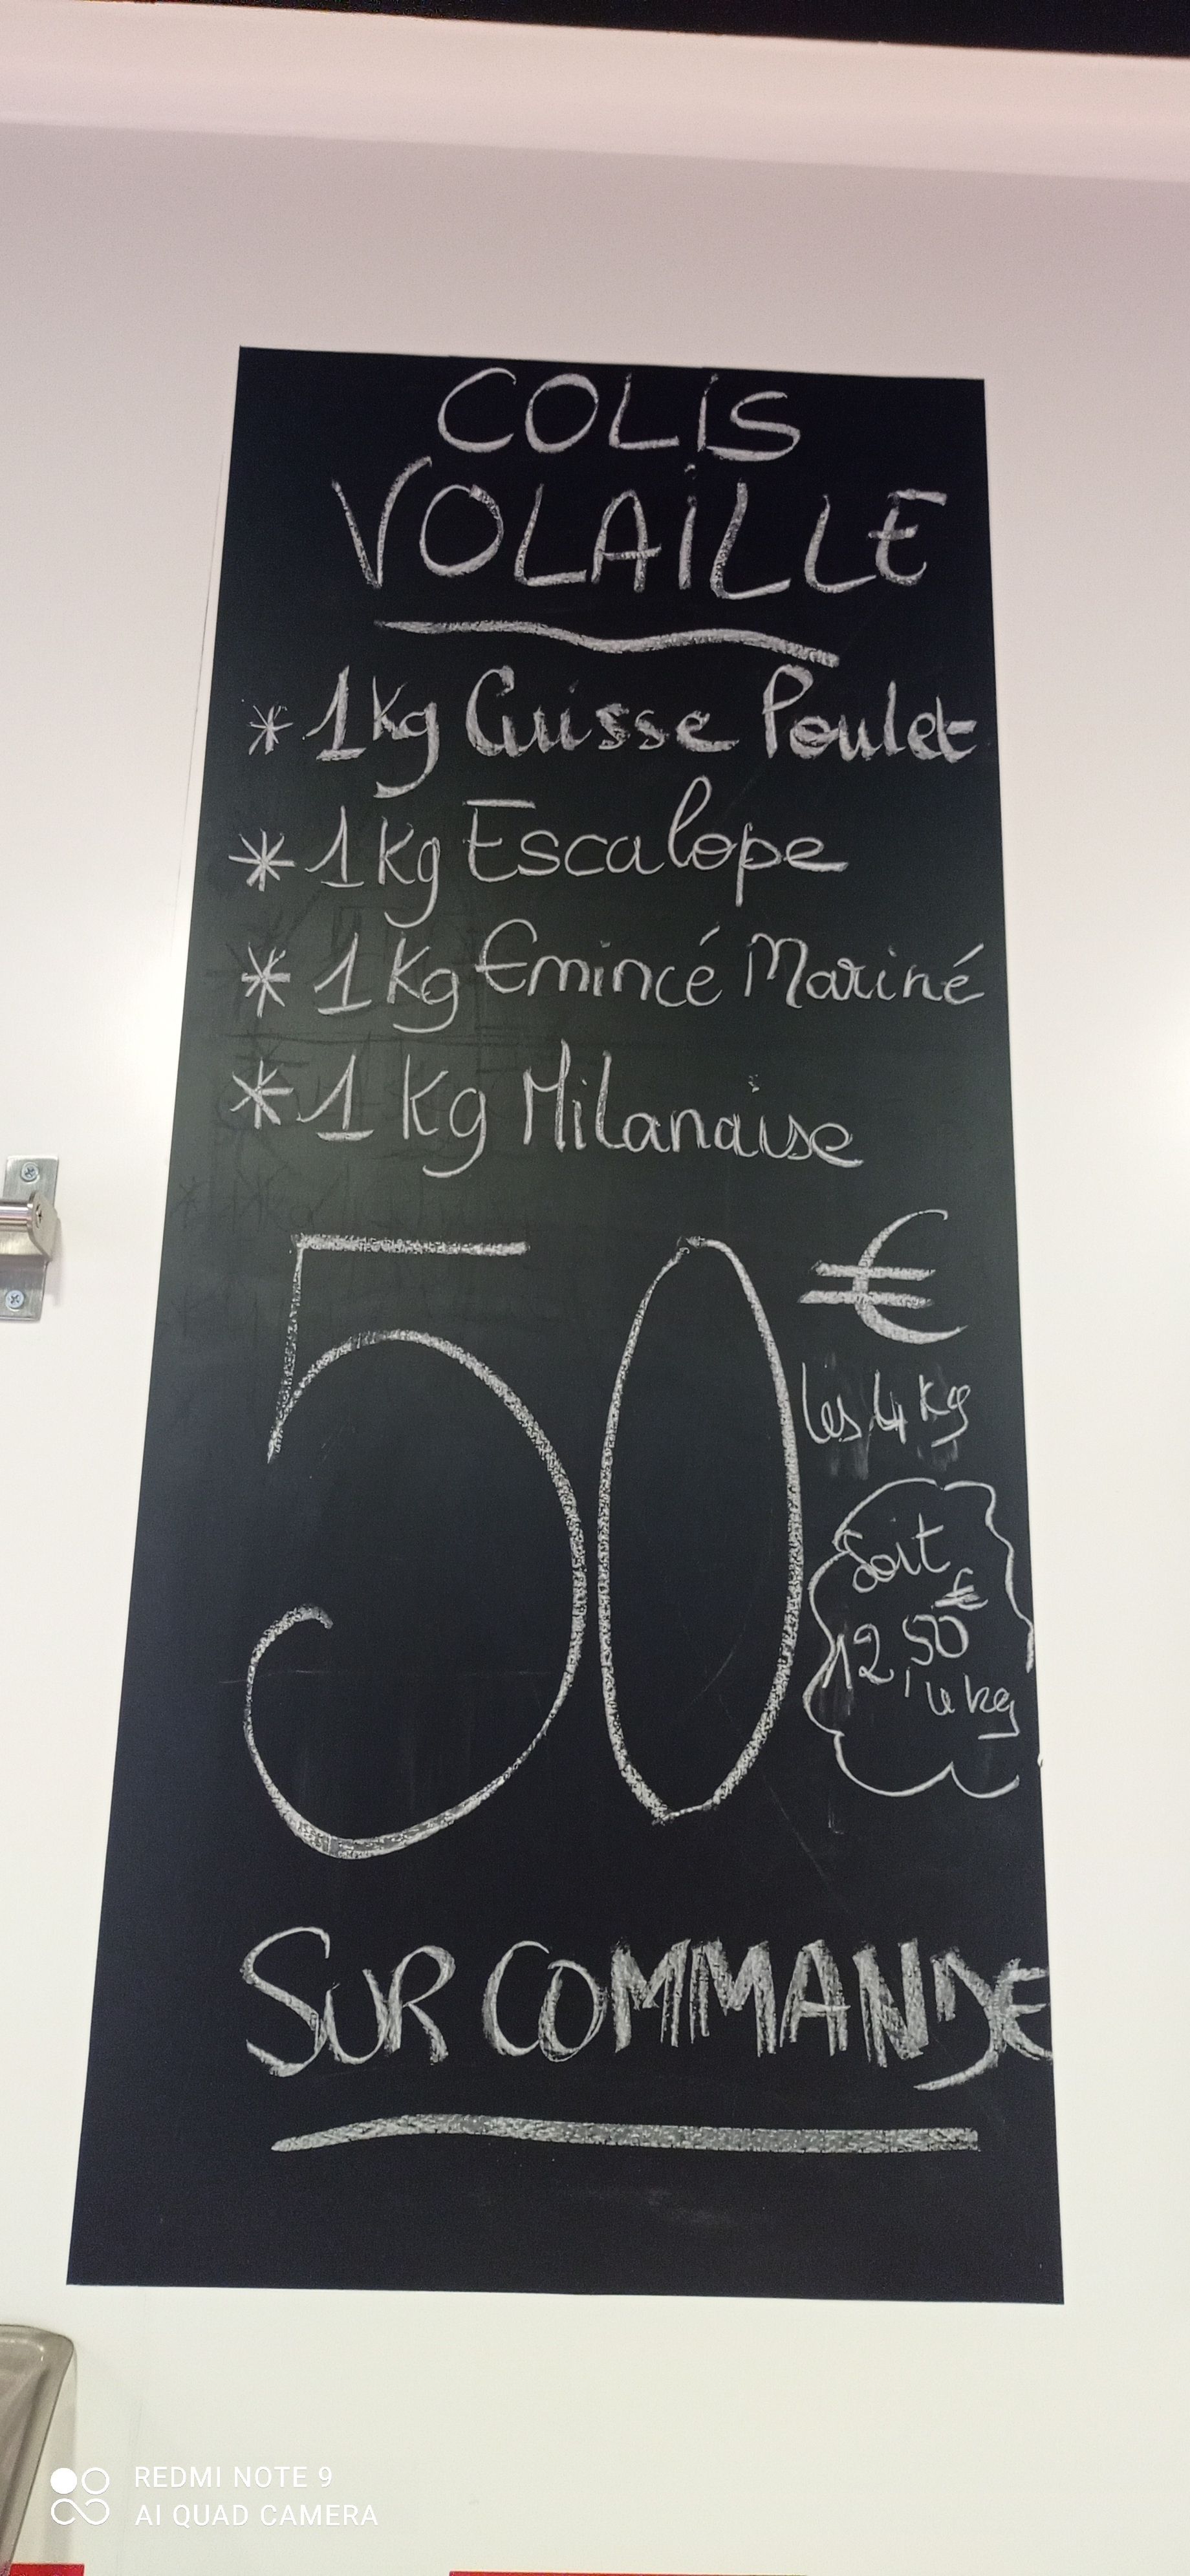 COLIS
VOLAILLE
* 1kg Cuisse Poulet
* 1kg Escalope
* 1kg Emincé Mariné
* 1kg Milanaise
50 €
les 4 kg
Soit
12,50 €
le kg
SUR COMMANDE
REDMI NOTE 9
AI QUAD CAMERA